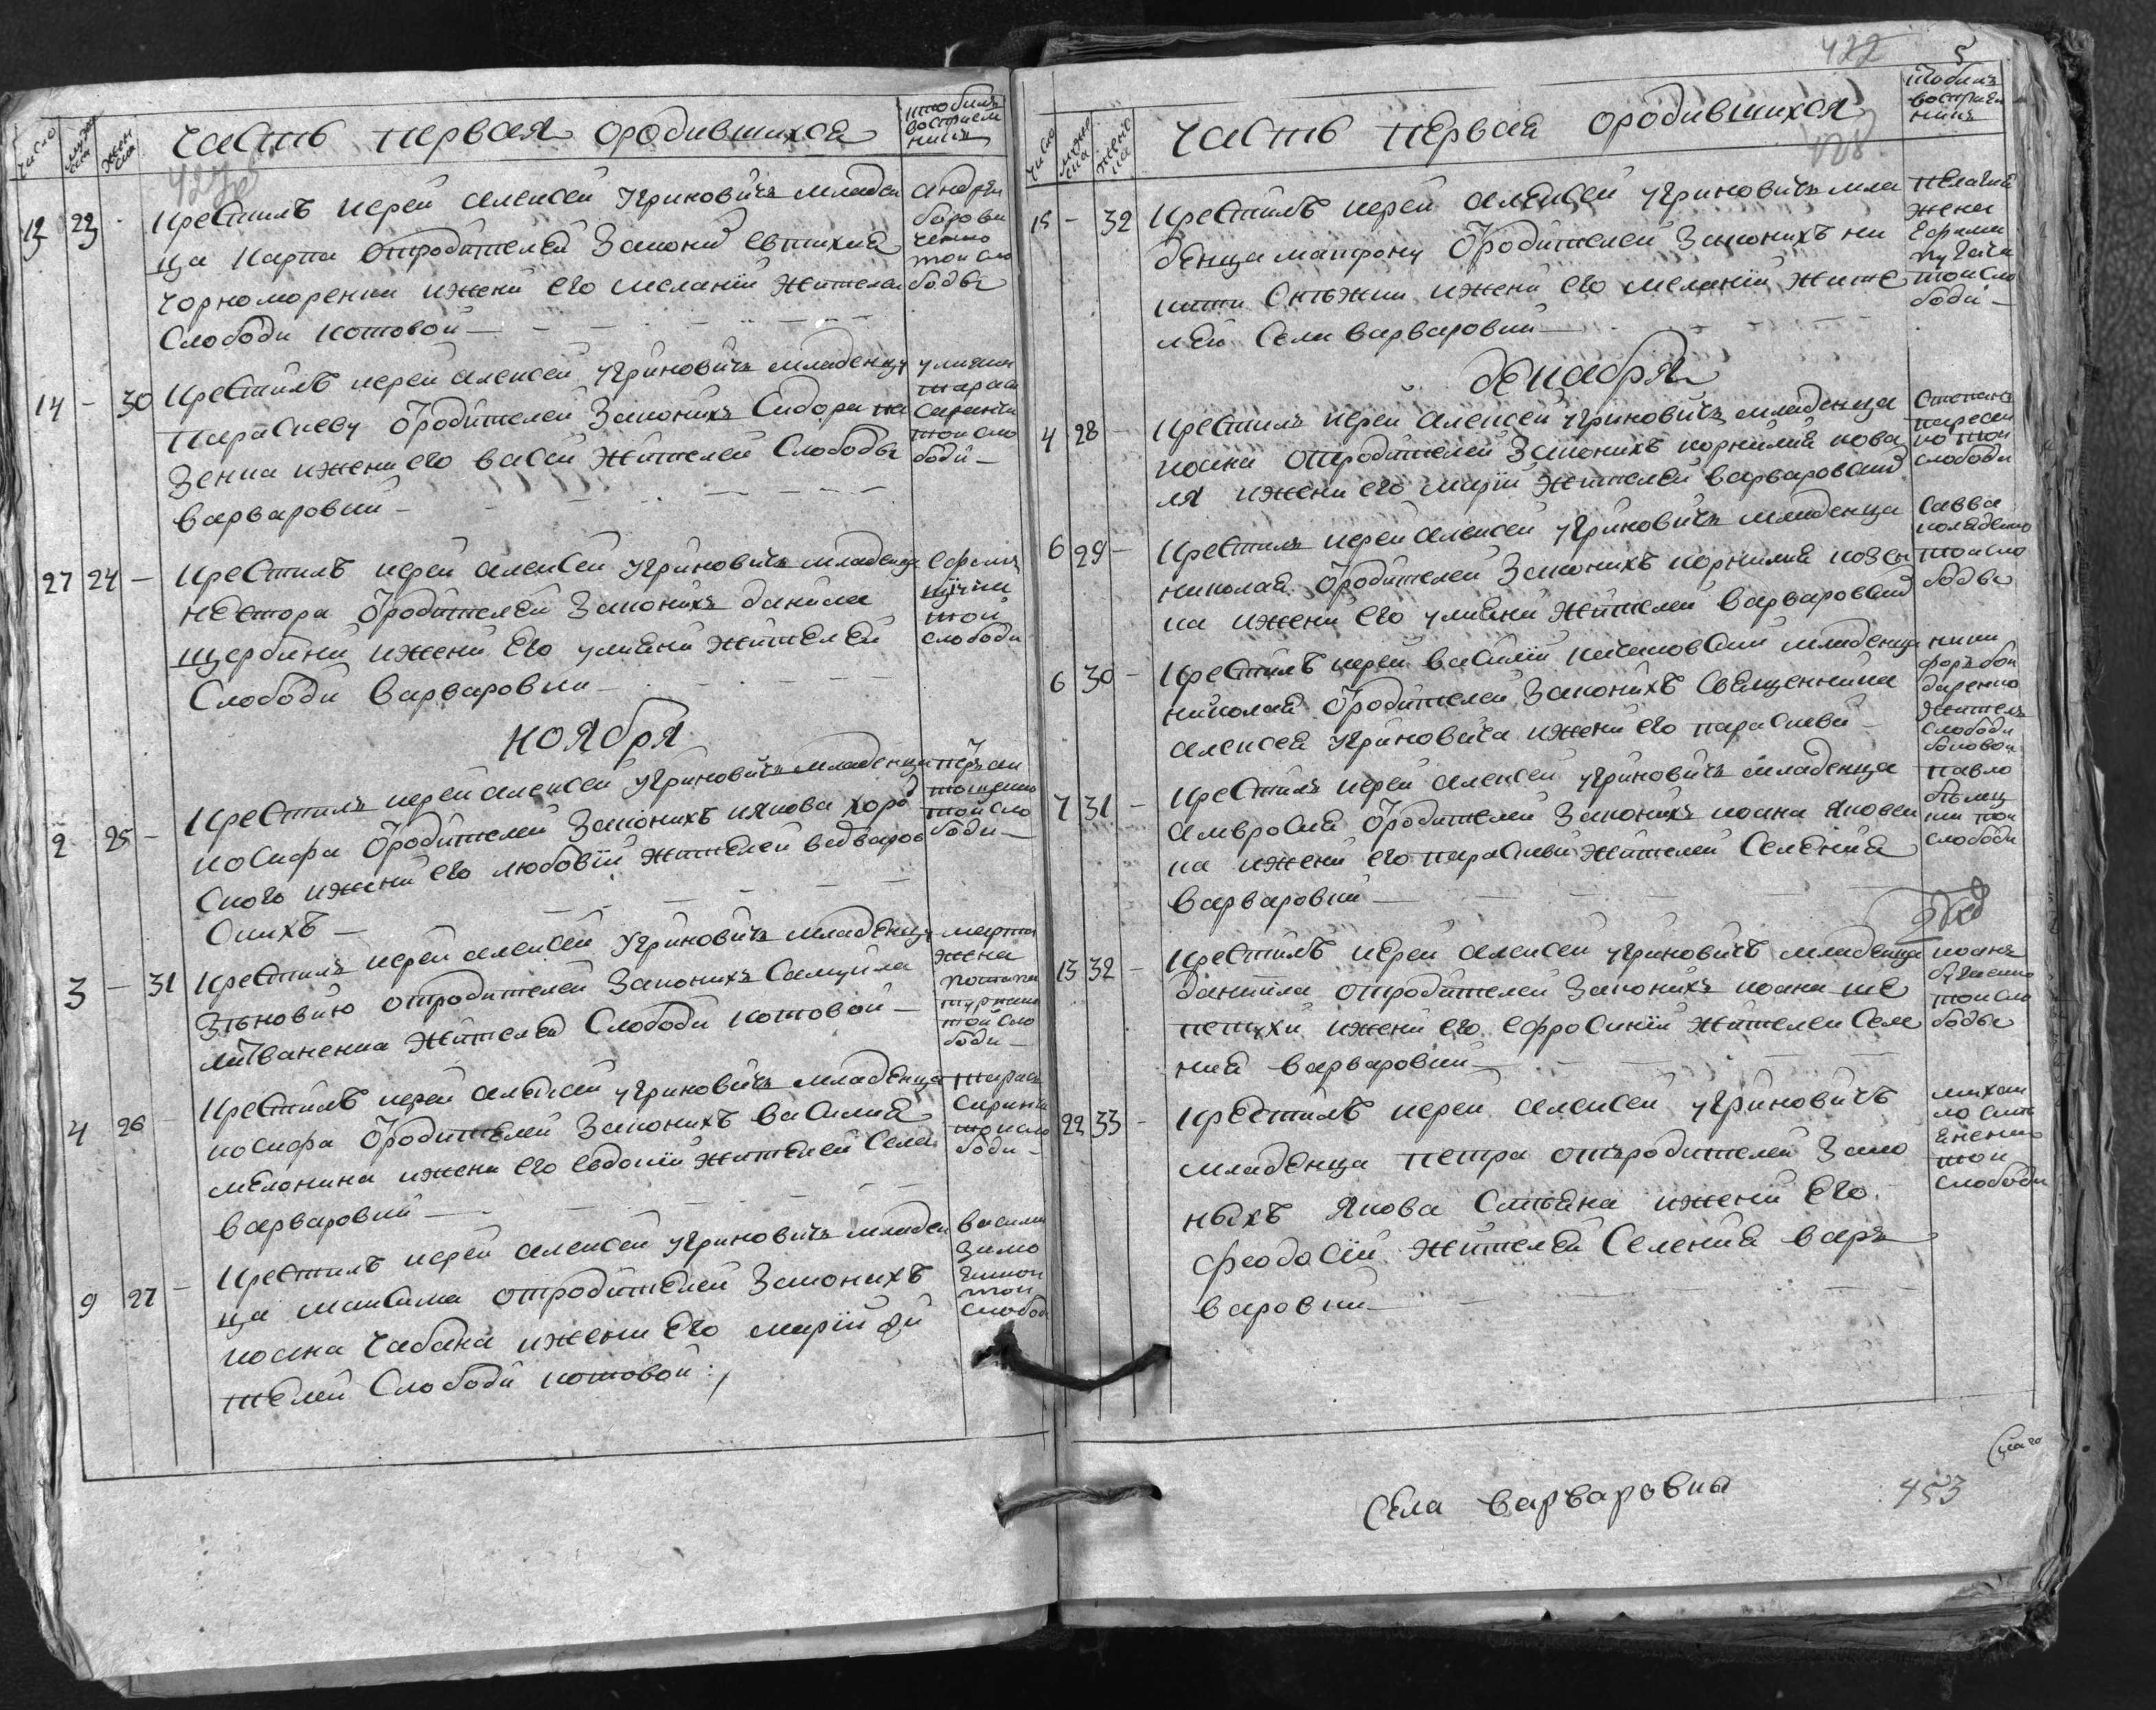 число
мужеска
женска
Часть первая ородившихся
ктобилъ восприемникъ
427
13 23 -
Крестилъ иерей алексей угриновичъ младен
ца карпа отродителей законих евтихия
Чорноморенка ижени его мелании жителей
Слободи котовой
андрей
борови
ченко
той сло
бодве
14 - 30
Крестилъ иерей алексей угриновичъ младенцу
параскеву ѿродителей законихъ Сидора ка
зенка ижени его васси жителей Слободы
варваровки
улияна
тараса
саранчи
той сло
боди
27 24 -
Крестилъ иерей алексей угриновичъ младенца
нестора ѿродителей законихъ данила
щербини ижени его улияни жителей
Слободи варваровки
ефремъ
той
слободи
ноября
2 25 -
Крестилъ иерей алексей угриновичъ младенца
иосифа ѿродителей законихъ иякова
ского ижени его любовии жителей вадваров
скихъ
той сло
боди
3 - 31
Крестилъ иерей алексей угриновичъ младенцу
зѣновию отродителей законихъ Самуила
литваненка жителей Слободи котовой
марта
жена
той сло
боди
4 26 -
Крестилъ иерей алексей угриновичъ младенца
иосифа ѿродителей законихъ василия
мелонина ижени его евдокии жителей села
варваровки
тарасъ
той сло
боди
9 27 -
Крестилъ иерей алексей угриновичъ младен
ца максима отродителей законихъ
иоана Чабана ижени его марии жи
телей Слободи котовой
василий
зимо
той
слободи
422
5
число
мужеска
женска
Часть первая ородившихся
ктобилъ восприемникъ
428
15 - 32
Крестилъ иерей алексей угриновичъ мла
денца матрону ѿродителей законихъ ни
кити Снѣжки ижени его мелании жите
лей Села варваровки
пелагия
жена
ефрема
пугача
той сло
боди
декабря
4 28 -
Крестилъ иерей алексей угриновичъ младенца
иоана отродителей законихъ корнилия кова
ля ижени его марии жителей варваровких
Степанъ
той
слободи
6 29 -
Крестилъ иерей алексей угриновичъ младенца
николая ѿродителей законихъ корнилия козы
на ижени его улияни жителей варваровких
савва
коляденко
той сло
бодве
6 30 -
Крестилъ иерей василий качановский младенца
николай ѿродителей законихъ Священника
алексея угриновича ижени его параскеви
ники
форъ бон
даренко
жителъ
слободи
7 31 -
Крестилъ иерей алексей угриновичъ младенца
амвросия ѿродителей законихъ иоана яковен
ка ижени его параскеви жителей Селения
варваровки
павло
той
слободи
13 32 -
Крестилъ иерей алексей угриновичъ младенца
данила отродителей законихъ иоана ше
петухи ижени его ефросинии жителей Селе
ния варваровки
иоанъ
той сло
бодве
22 33 -
Крестилъ иерей алексей угриновичъ
младенца петра отъродителей зако
ныхъ якова Стояна ижени его
феодосии жителей Селения варъ
варовки
михай
ло
той
слободи
Села варваровкы
453